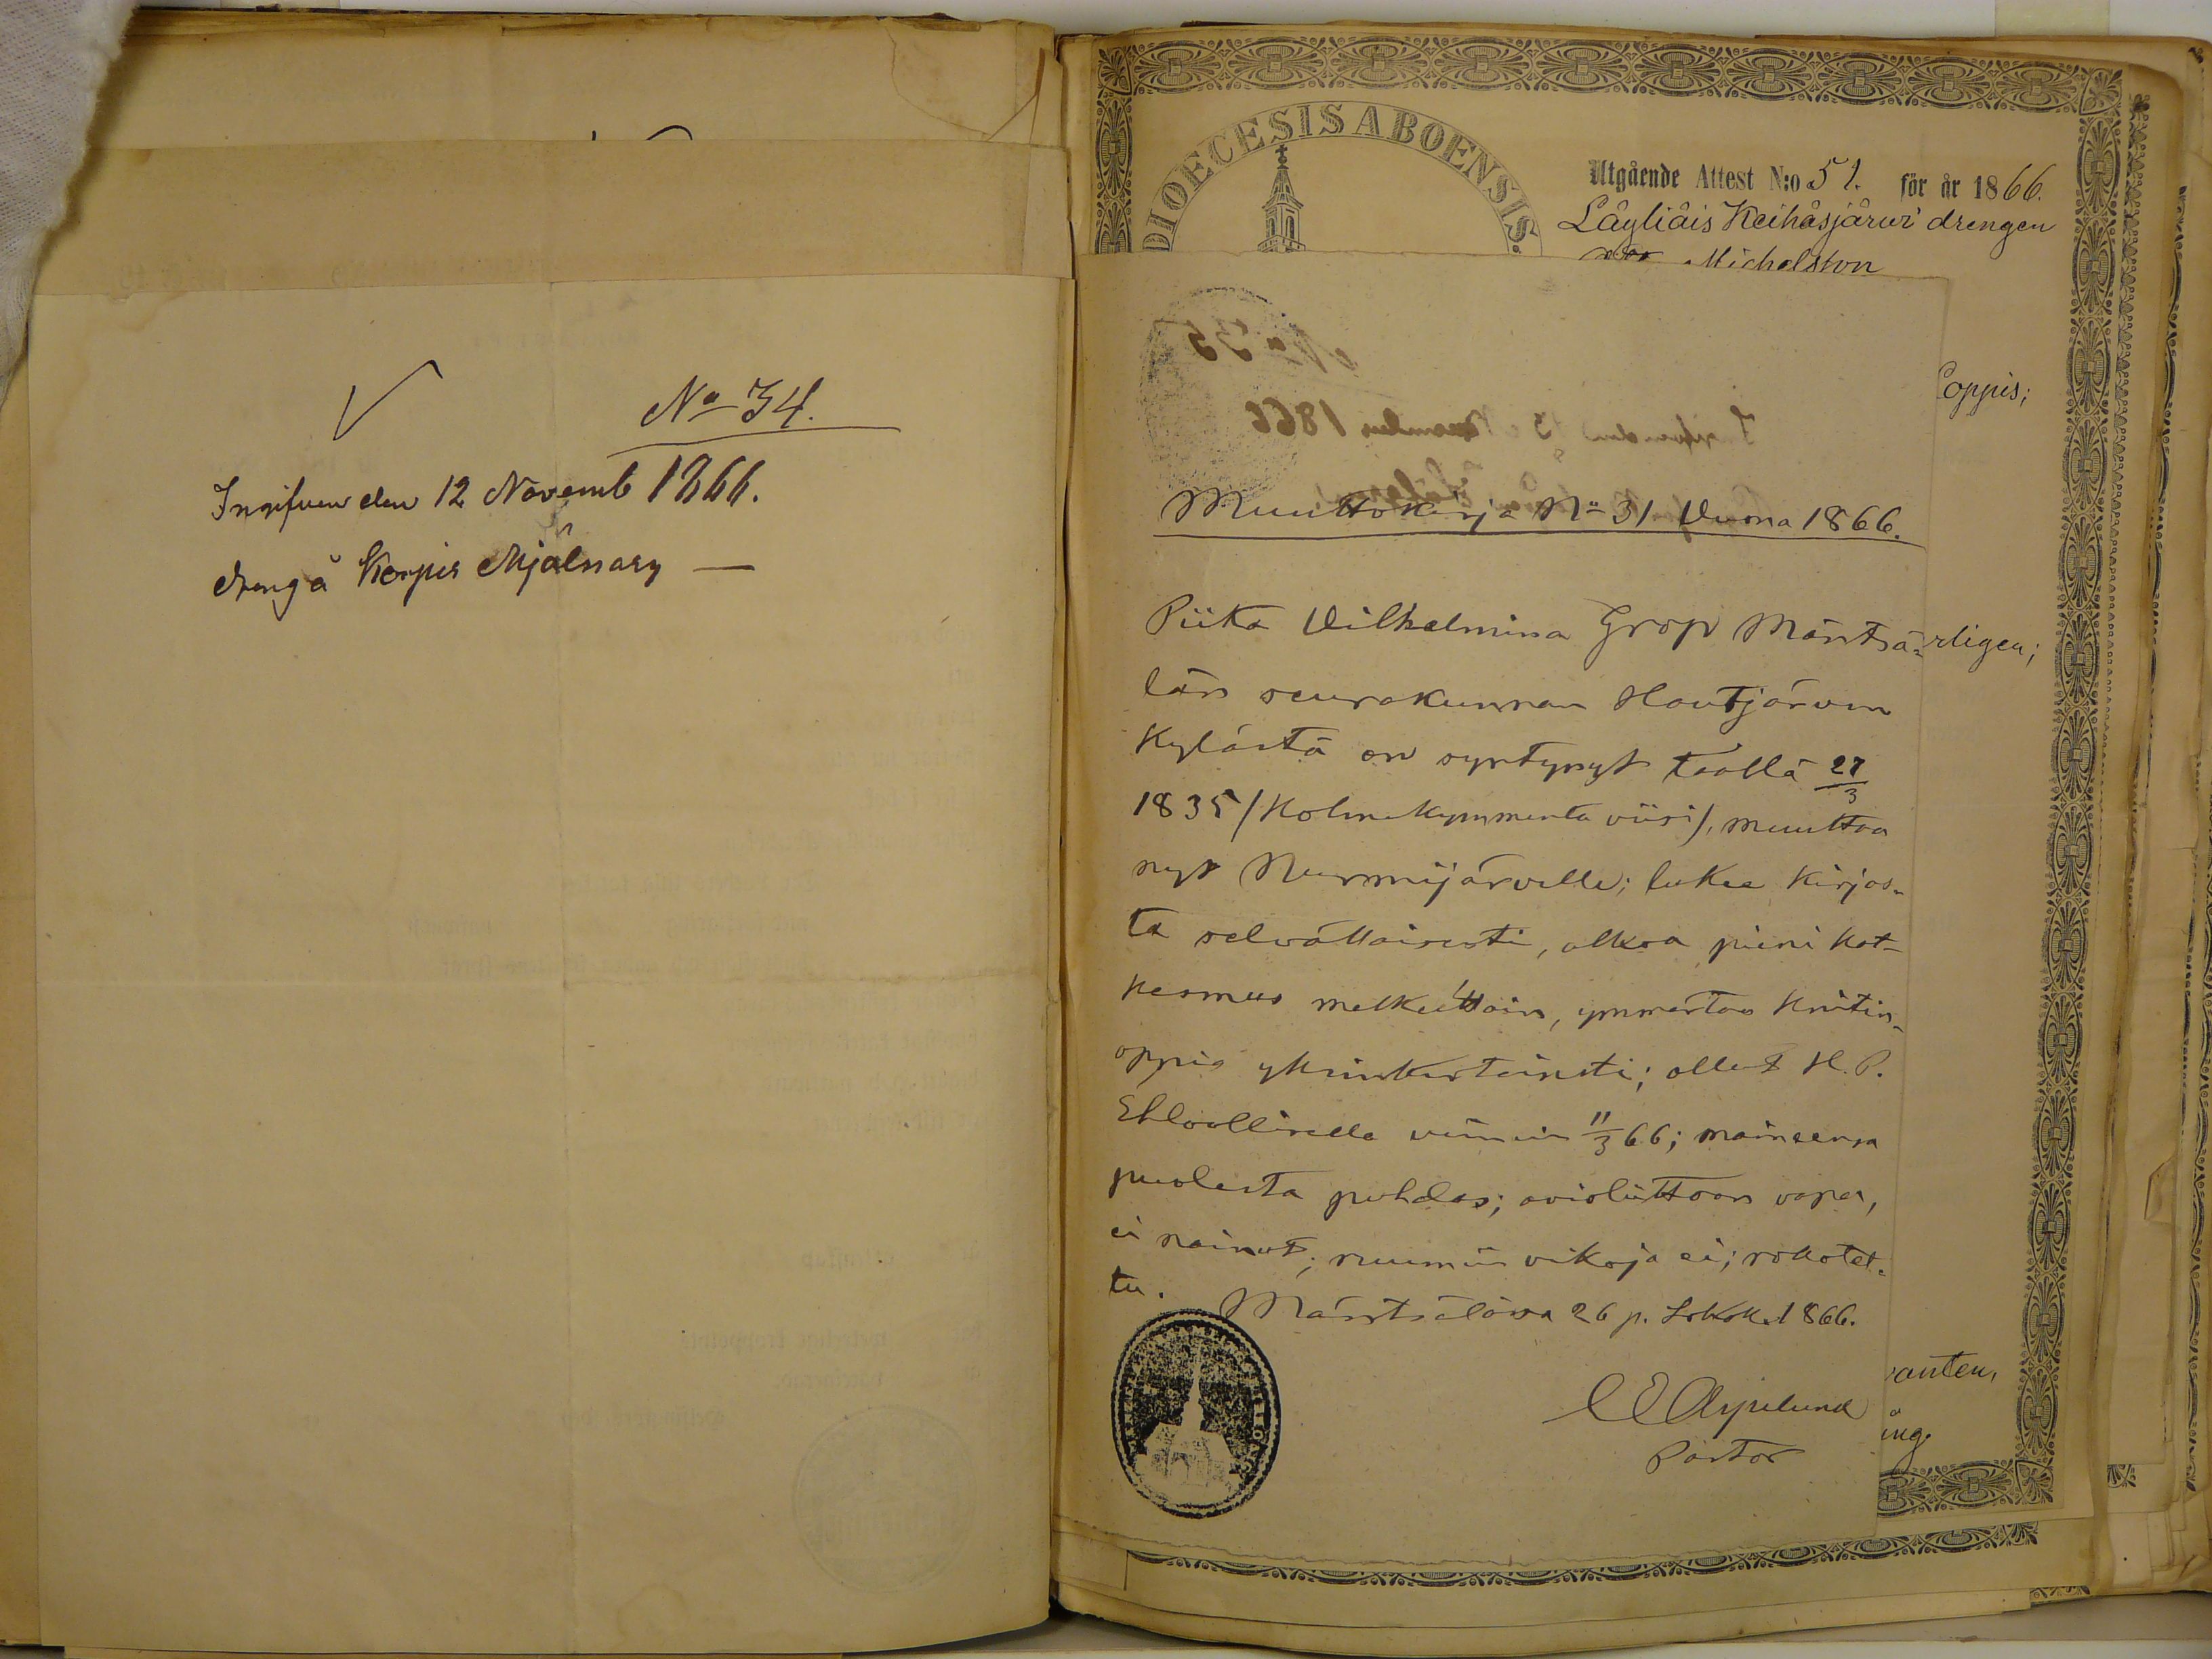 No 34.
Ingifven den 12 Novemb 1866.
dreng å Korpis Mjölnary —
DIOECESIS ABOENSIS.
Utgående Attest N:o 51. för år 1866.
Läyliäis Keihäsjärwi drengen
Michelsson
Coppis;
No 35
1866
Muuttokirja No 31 Vuona 1866.
Piika Vilhelmina Grop Mäntsä-
rligen;
län seurakunnan Hautjärven
Kylästä on syntynyt täällä 27/3
1835 (Kolmekymmentä viisi), muuttaa
nyt Nurmijärvelle; lukee kirjas-
ta selvällaisesti, alkaa pieni kat-
kesmus melkeittäin, ymmärtää Kristin-
oppia yksinkertaisesti; ollut H. P.
Ehtoollisella viimein 11/3 66; maineensa
puolesta puhdas; avioliittoon vapa,
ei nainut; ruumiin vikoja ei; rokotet-
tu.
Mäntsälässä 26 p. Lokak. 1866.
Pastor
anten,
ing.